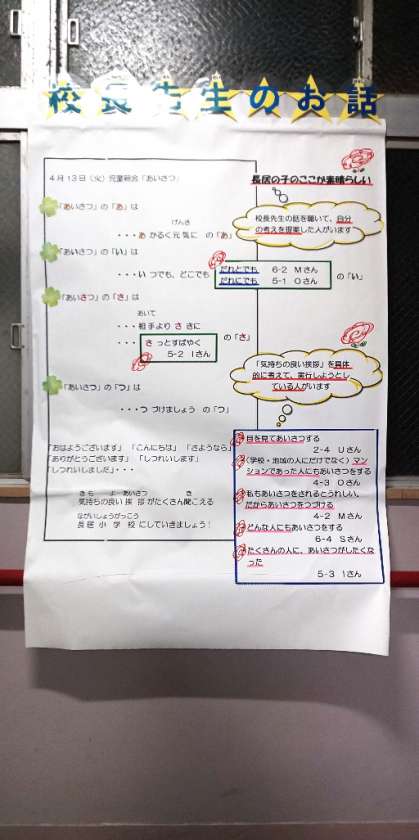 校長先生のお話
4月13日（火）児童朝会「あいさつ」
「あいさつ」の「あ」は
げんき
・・・あ かるく元気に の「あ」
「あいさつ」の「い」は
・・・い つでも、どこでも
だれとでも 6-2 Mさん
だれにでも 5-1 Oさん
の「い」
「あいさつ」の「さ」は
あいて
・・・相手より さ きに
・・・ さ っとすばやく
5-2 Iさん
の「さ」
「あいさつ」の「つ」は
・・・つ づけましょう の「つ」
「おはようございます」「こんにちは」「さようなら」
「ありがとうございます」「しつれいします」
「しつれいしました」・・・
きも よ あいさつ き
気持ちの良い 挨 拶 がたくさん聞こえる
ながいしょうがっこう
長 居 小 学 校 にしていきましょう！
長居の子のここが素晴らしい
校長先生の話を聴いて、自分
の考えを提案した人がいます
「気持ちの良い挨拶」を具体
的に考えて、実行しようとし
ている人がいます
目を見てあいさつする
2-4 Uさん
（学校・地域の人にだけでなく）マン
ションであった人にもあいさつをする
4-3 Oさん
私もあいさつをされるとうれしい、
だからあいさつをつづける
4-2 Mさん
どんな人にもあいさつをする
6-4 Sさん
たくさんの人に、あいさつがしたくな
った
5-3 Iさん